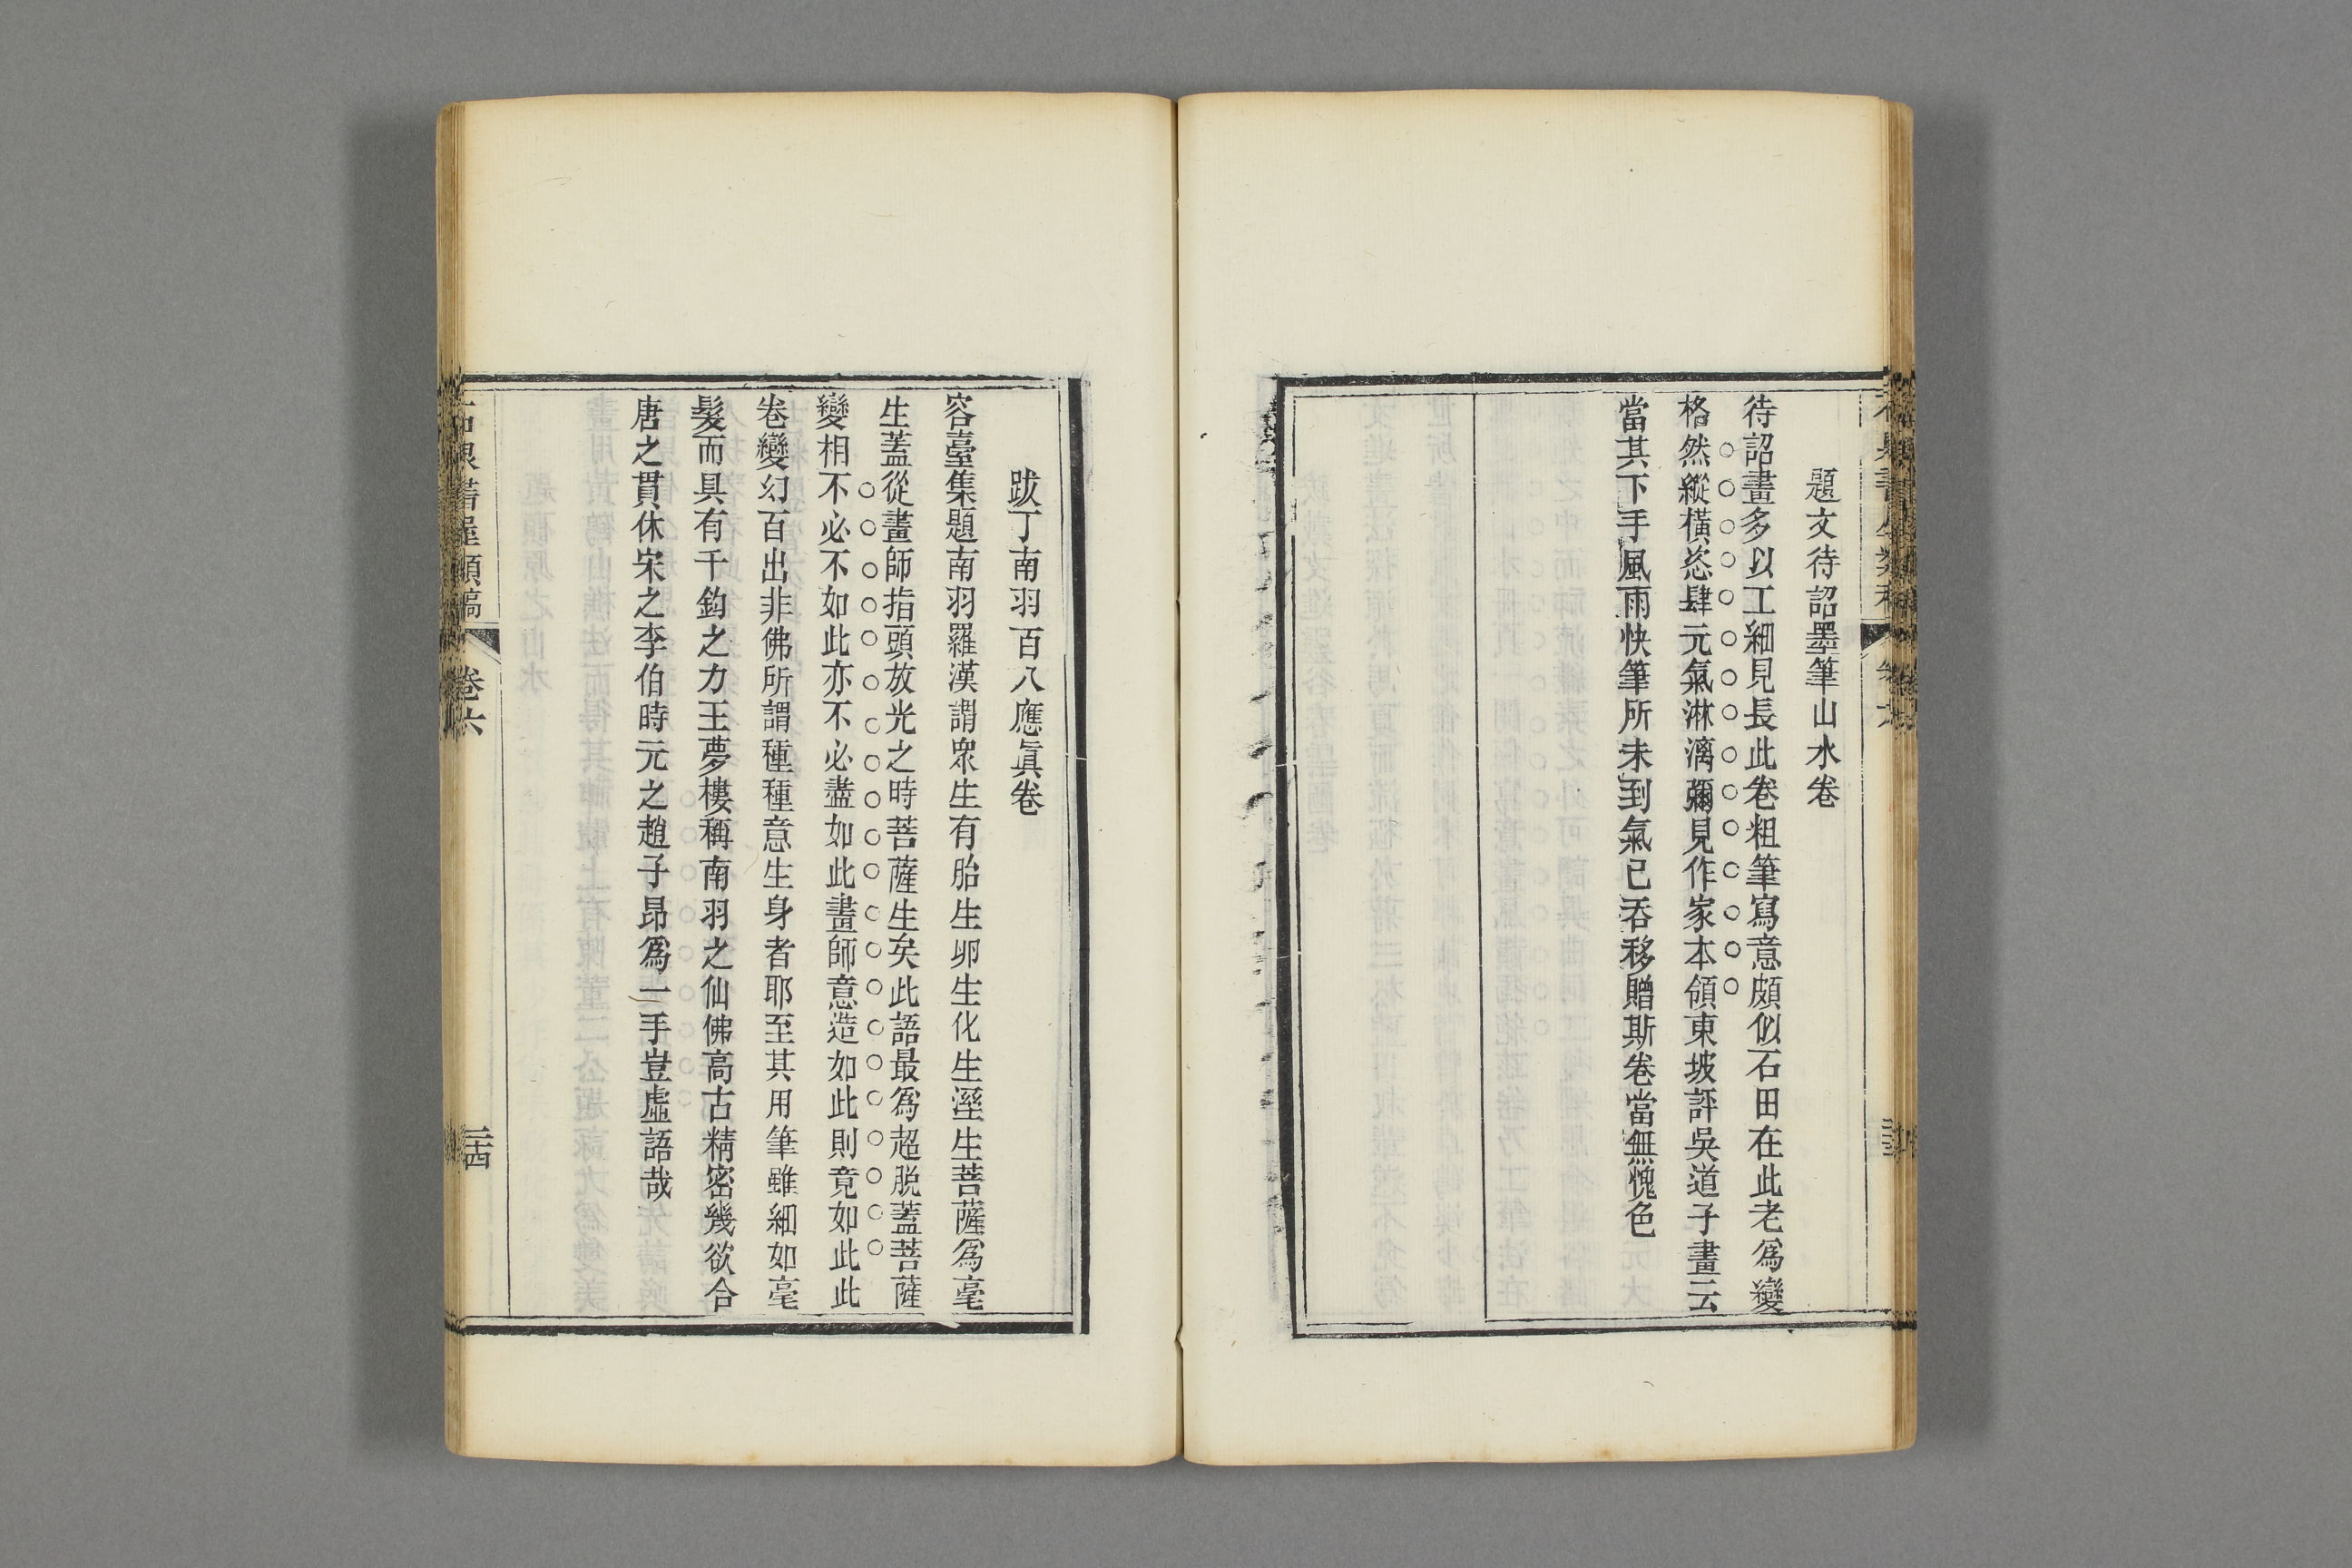 題文待詔墨筆山水卷
待詔畫多以工細見長此卷粗筆寫意頗似石田在此老爲變
格然縱橫恣肆元氣淋漓彌見作家本領東坡評吳道子畫云
當其下手風雨快筆所未到氣已吞移贈斯卷當無愧色
跋丁南羽百八應眞卷
容臺集題南羽羅漢謂衆生有胎生卵生化生溼生菩薩爲毫
生蓋從畫師指頭放光之時菩薩生矣此語最爲超脫蓋菩薩
變相不必不如此亦不必盡如此畫師意造如此則竟如此此
卷變幻百出非佛所謂種種意生身者耶至其用筆雖細如毫
髮而具有千鈞之力王夢樓稱南羽之仙佛高古精密幾欲合
唐之貫休宋之李伯時元之趙子昂爲一手豈虛語哉
卷六
二十四